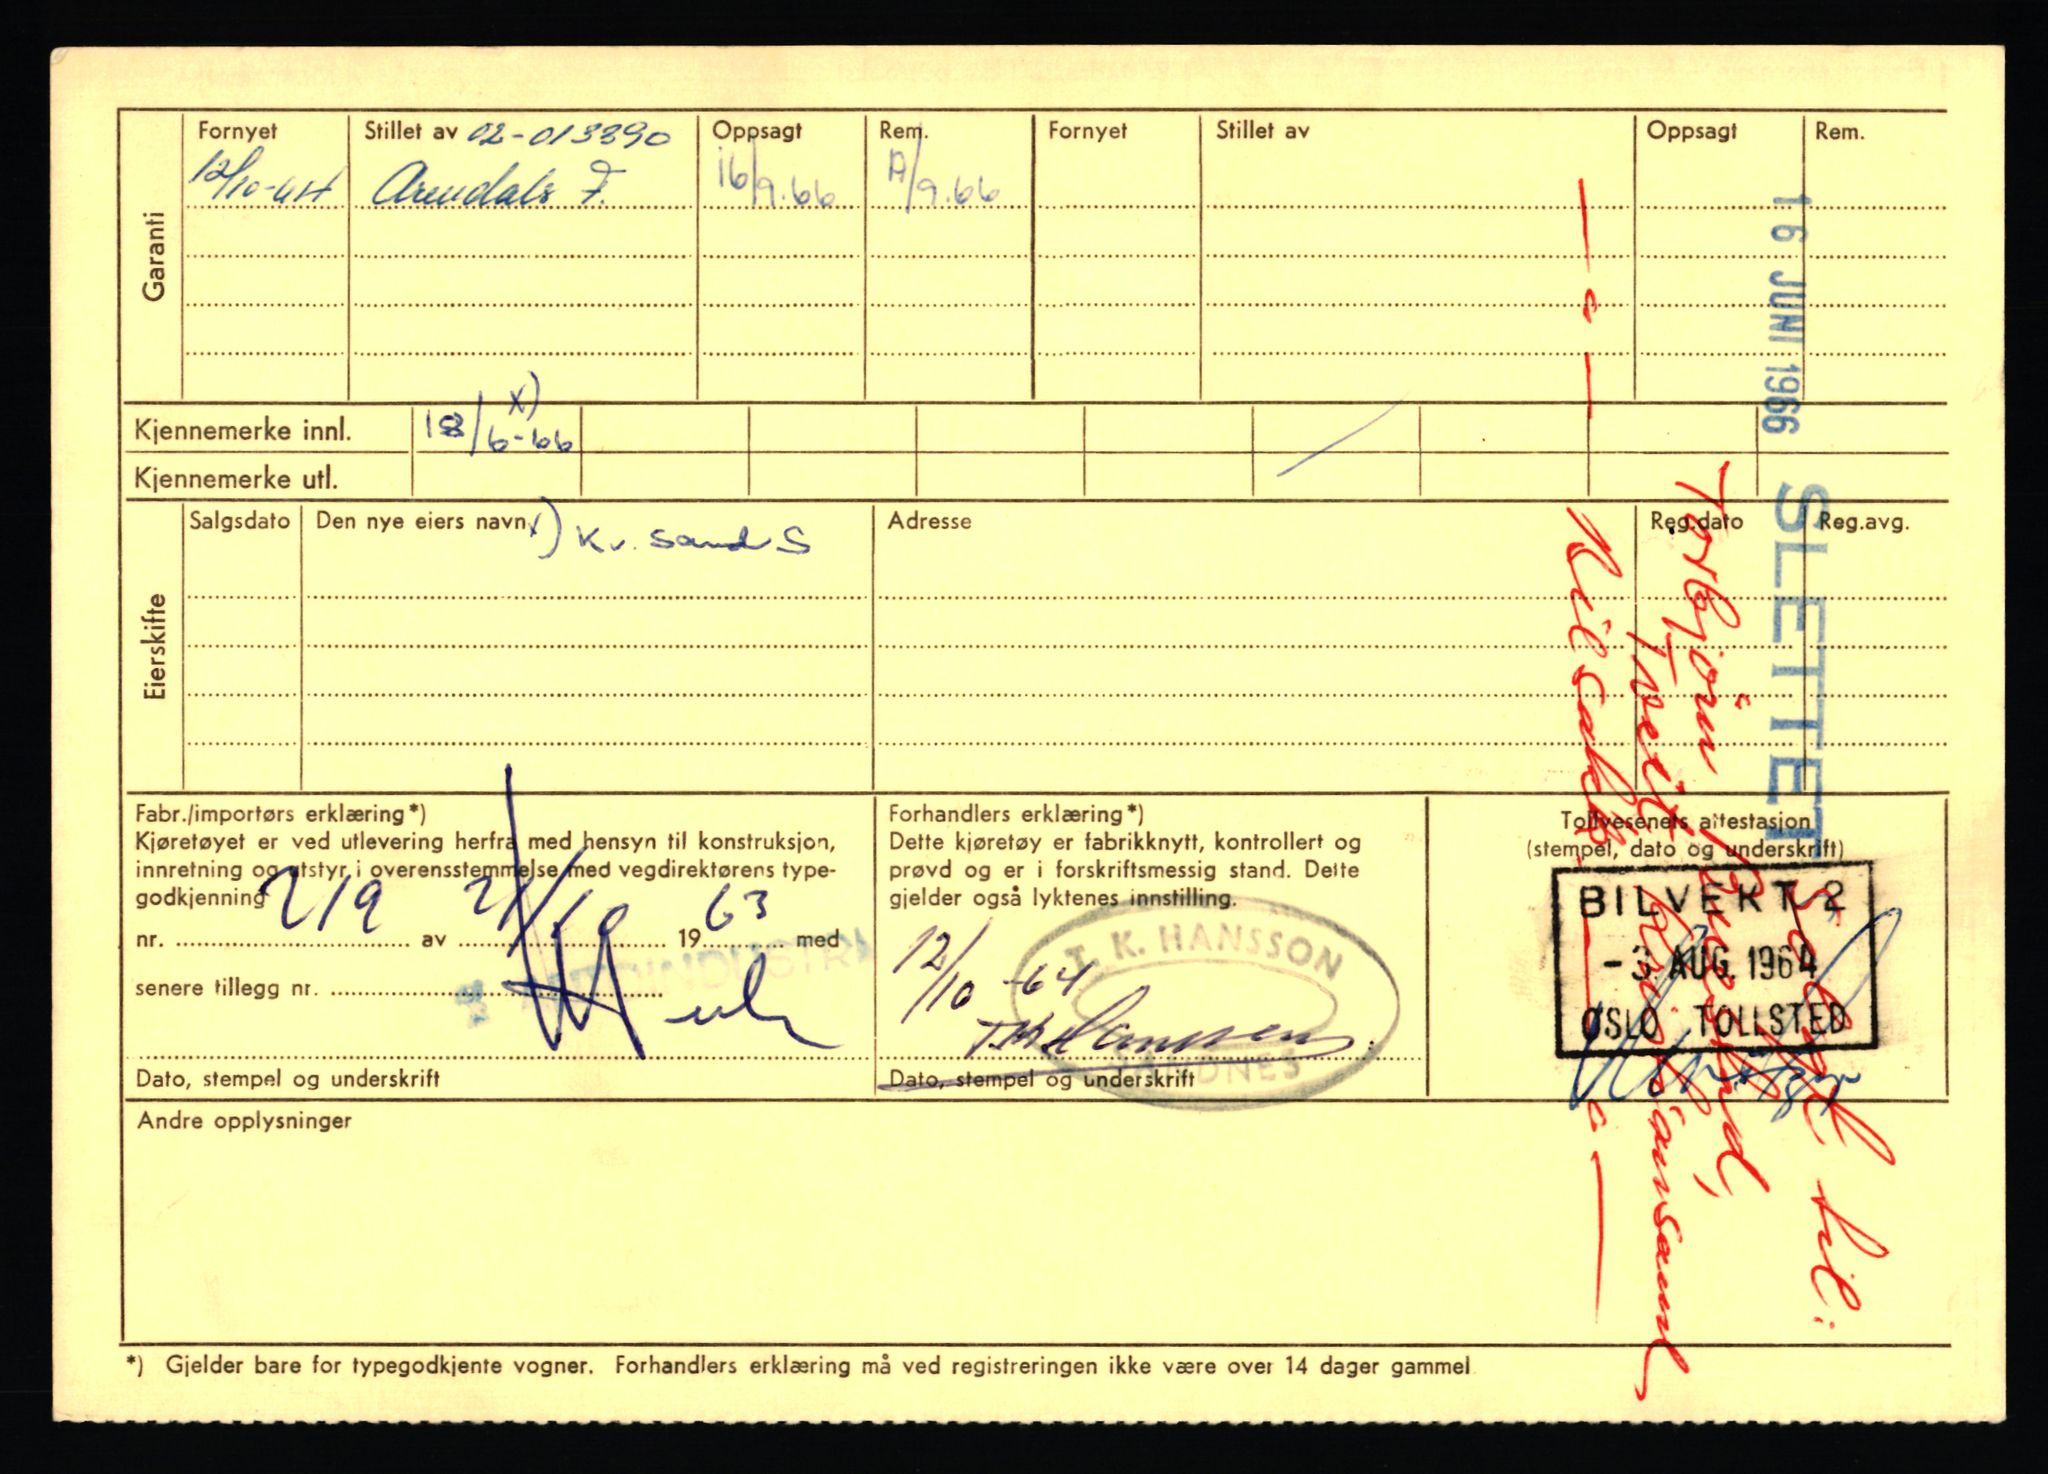 Garanti
Fornyet Stillet av 02-013390 Oppsagt Rem. Fornyet Stillet av Oppsagt Rem.
12/10-64 Arendals F. 16/9.66 A/9.66
Kjennemerke innl. 18/6-66 x)
Kjennemerke utl.
Eierskifte
Salgsdato Den nye eiers navn x) Kr. sand S Adresse Reg.dato Reg.avg.
16 JUNI 1966
SLETTET
Solgt til:
Torbjörn Bueland,
Tveit Kristiansand
Fabr./importørs erklæring*)
Kjøretøyet er ved utlevering herfra med hensyn til konstruksjon,
innretning og utstyr i overensstemmelse med vegdirektørens type-
godkjenning
nr. 219 av 21/10 1963 med
senere tillegg nr.
Dato, stempel og underskrift
Forhandlers erklæring*)
Dette kjøretøy er fabrikknytt, kontrollert og
prøvd og er i forskriftsmessig stand. Dette
gjelder også lyktenes innstilling.
12/10-64
T. K. HANSSON
T.K. Hansson
Dato, stempel og underskrift
Tollvesenets attestasjon
(stempel, dato og underskrift)
BILVEKT 2
-3. AUG. 1964
OSLO TOLLSTED
Andre opplysninger
*) Gjelder bare for typegodkjente vogner. Forhandlers erklæring må ved registreringen ikke være over 14 dager gammel